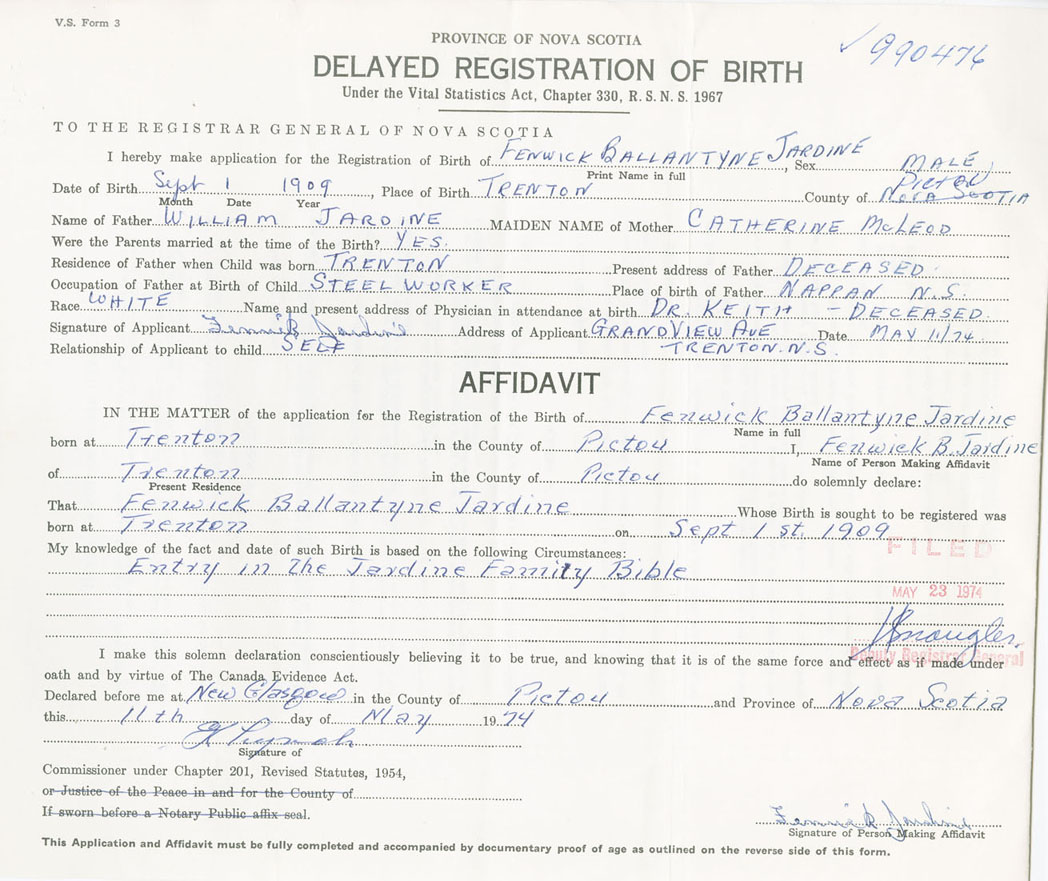 V.S. Form 3
PROVINCE OF NOVA SCOTIA
✓ 990476
DELAYED REGISTRATION OF BIRTH
Under the Vital Statistics Act, Chapter 330, R. S. N. S. 1967
TO THE REGISTRAR GENERAL OF NOVA SCOTIA
I hereby make application for the Registration of Birth of FENWICK BALLANTYNE JARDINE, Sex MALE
Print Name in full
PICTOU
Date of Birth Sept 1 1909, Place of Birth TRENTON County of NOVA SCOTIA
Month Date Year
Name of Father WILLIAM JARDINE MAIDEN NAME of Mother CATHERINE McLEOD
Were the Parents married at the time of the Birth? YES.
Residence of Father when Child was born TRENTON Present address of Father DECEASED.
Occupation of Father at Birth of Child STEEL WORKER Place of birth of Father NAPPAN N.S.
Race WHITE Name and present address of Physician in attendance at birth DR. KEITH - DECEASED.
Signature of Applicant Fenwick Jardine Address of Applicant GRANDVIEW AVE Date MAY 11/74
Relationship of Applicant to child SELF TRENTON. N.S.
AFFIDAVIT
IN THE MATTER of the application for the Registration of the Birth of Fenwick Ballantyne Jardine
Name in full
born at Trenton in the County of Pictou I, Fenwick B. Jardine
Name of Person Making Affidavit
of Trenton in the County of Pictou do solemnly declare:
Present Residence
That Fenwick Ballantyne Jardine Whose Birth is sought to be registered was
born at Trenton on Sept 1 st. 1909
My knowledge of the fact and date of such Birth is based on the following Circumstances:
FILED
Entry in the Jardine Family Bible
MAY 23 1974
Deputy Registrar General
I make this solemn declaration conscientiously believing it to be true, and knowing that it is of the same force and effect as if made under
oath and by virtue of The Canada Evidence Act.
Declared before me at New Glasgow in the County of Pictou and Province of Nova Scotia
this 11th day of May 1974
Signature of
Commissioner under Chapter 201, Revised Statutes, 1954,
or Justice of the Peace in and for the County of
If sworn before a Notary Public affix seal.
Fenwick Jardine
Signature of Person Making Affidavit
This Application and Affidavit must be fully completed and accompanied by documentary proof of age as outlined on the reverse side of this form.